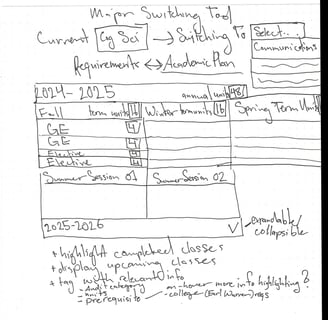 Major Switching Tool
Current Cog Sci → Switching To Select...
Communications
Requirements ↔ Academic Plan
2024-2025 annual units 48
Fall term units 16 Winter term units 16 Spring Term Unit
GE 4
GE 4
Elective 4
Elective 4
Summer Session 01 Summer Session 02
2025-2026 V
expandable/
collapsible
+ highlight completed classes
+ display upcoming classes
+ tag with relevant info
- Audit category
- units
- prerequisite
- on-hover more info highlighting?
- college (Earl Warren) reqs